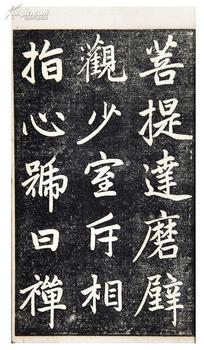 菩提達磨壁
觀少室斥相
指心號曰禪